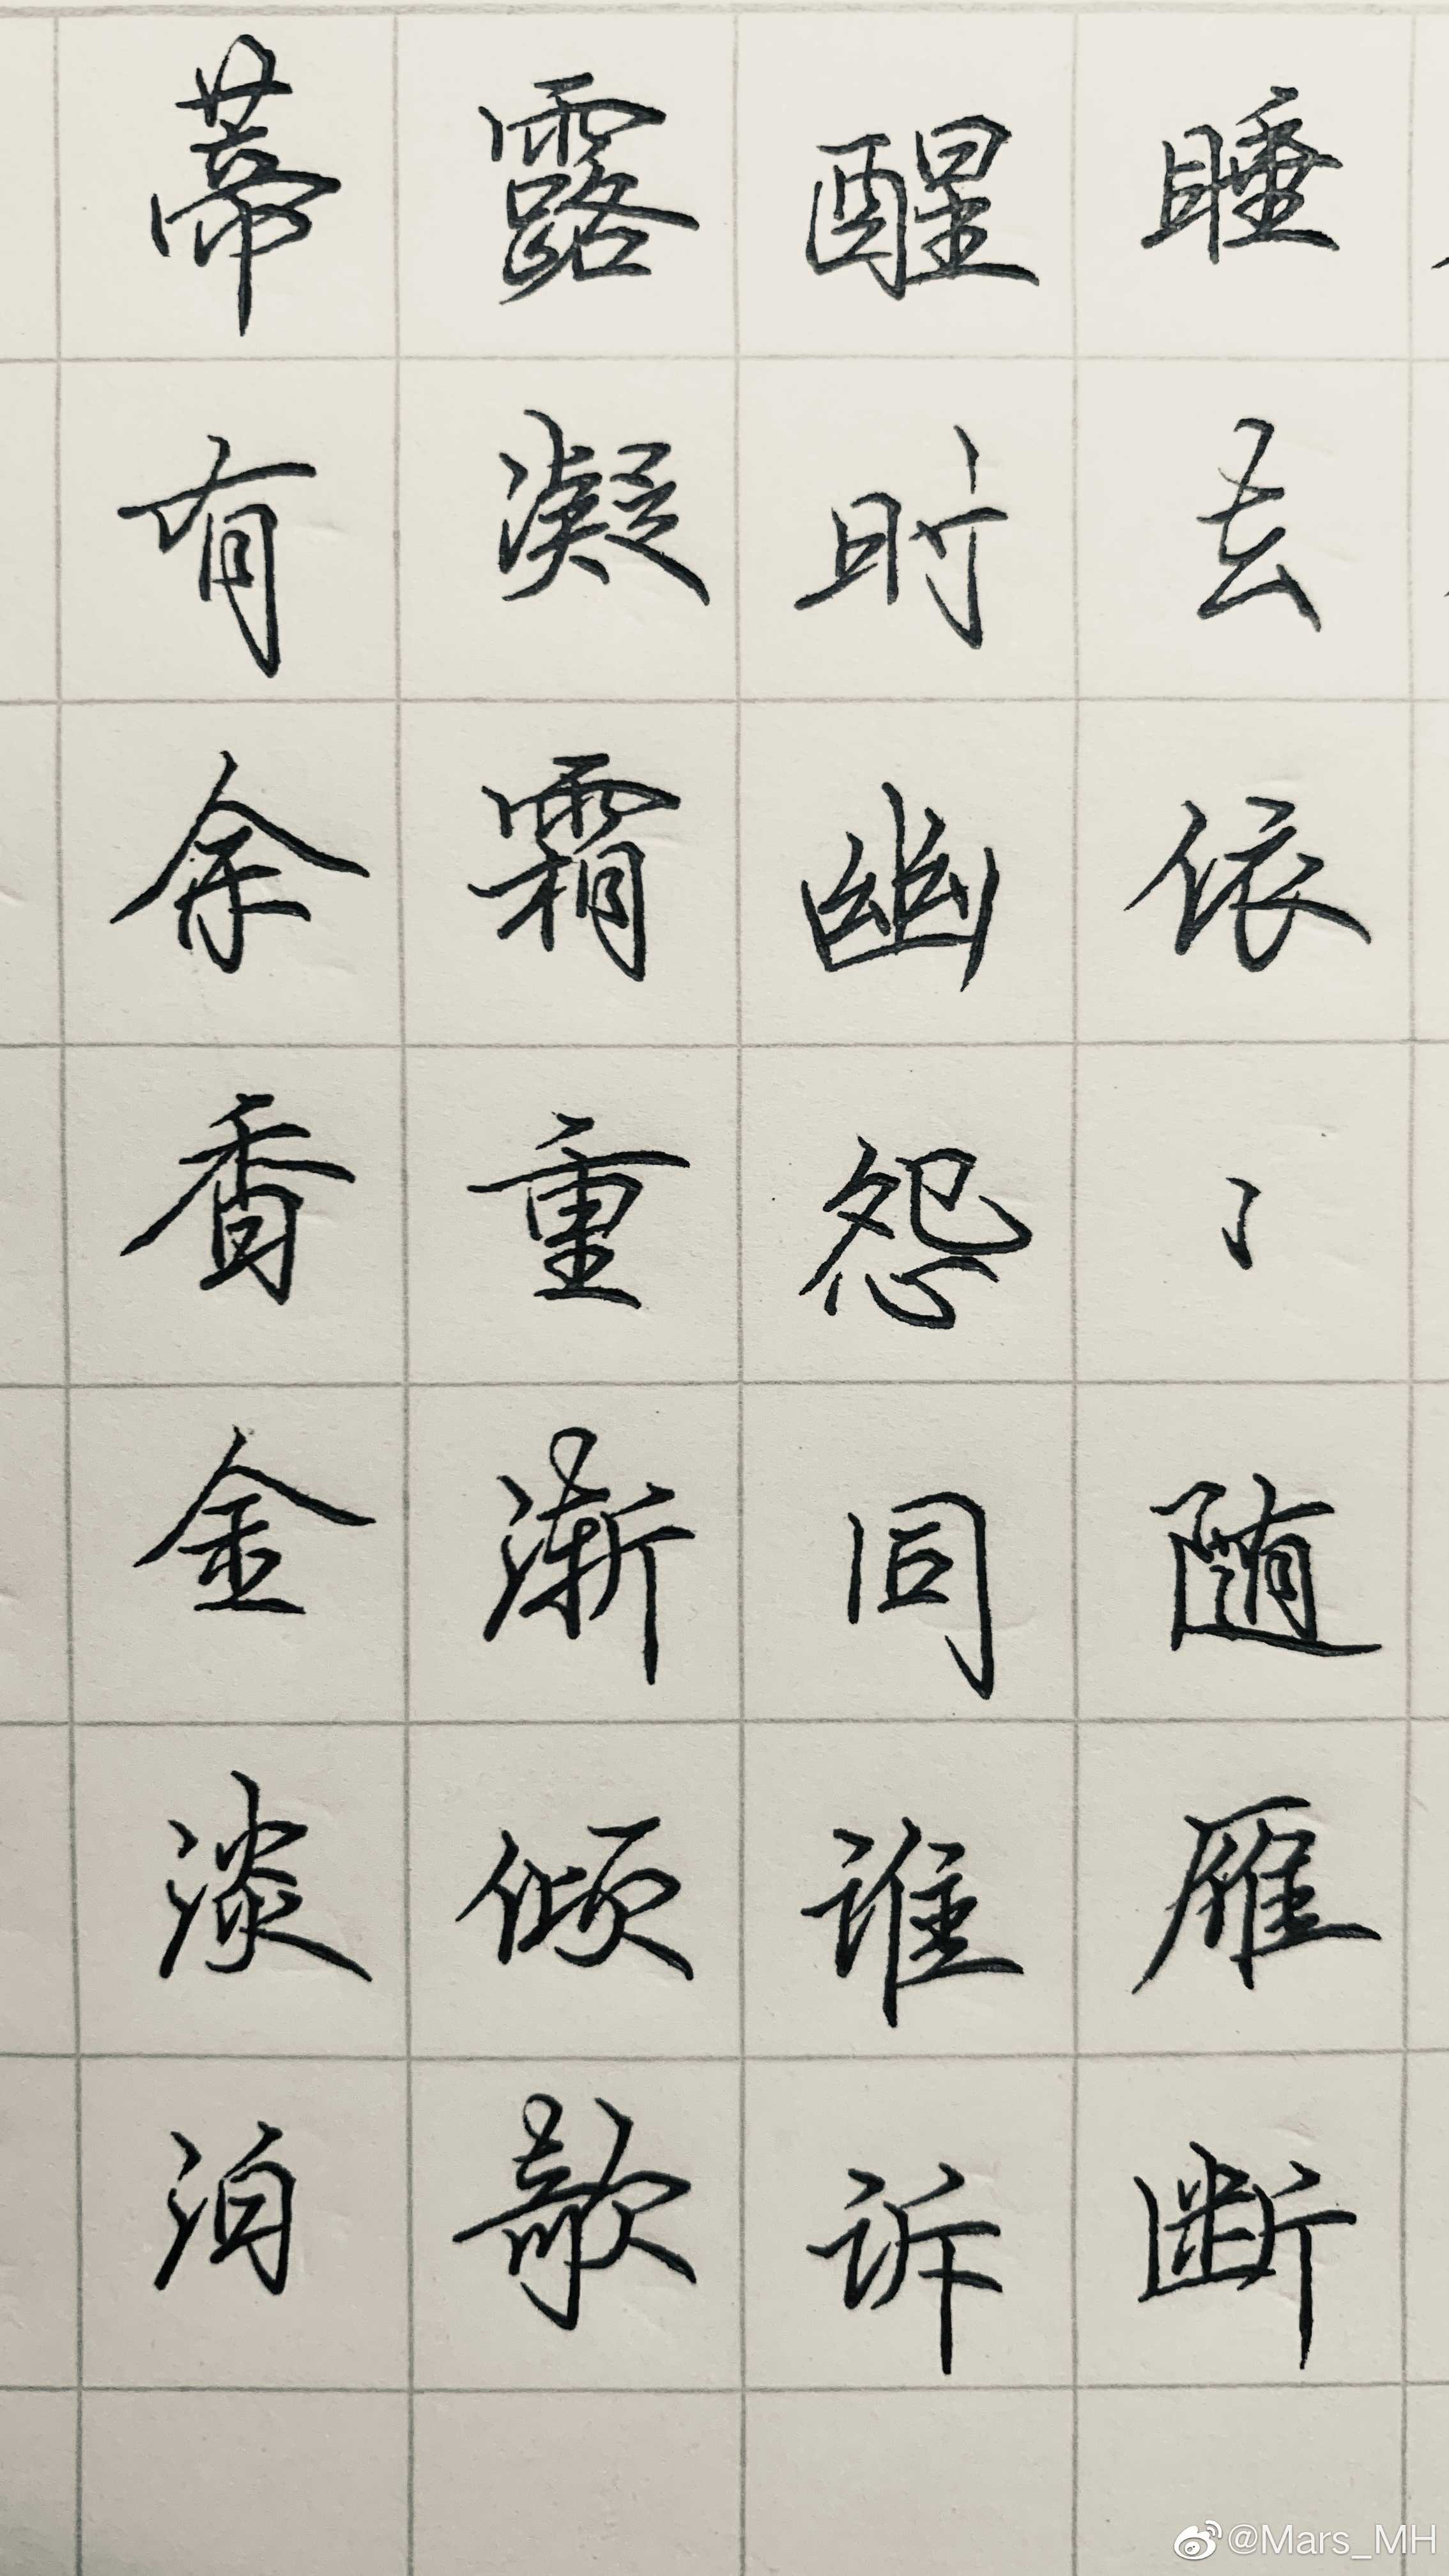 睡去依:随雁断
醒时幽怨同谁诉
露凝霜重渐倾欹
蒂有余香金淡泊
@Mars_MH